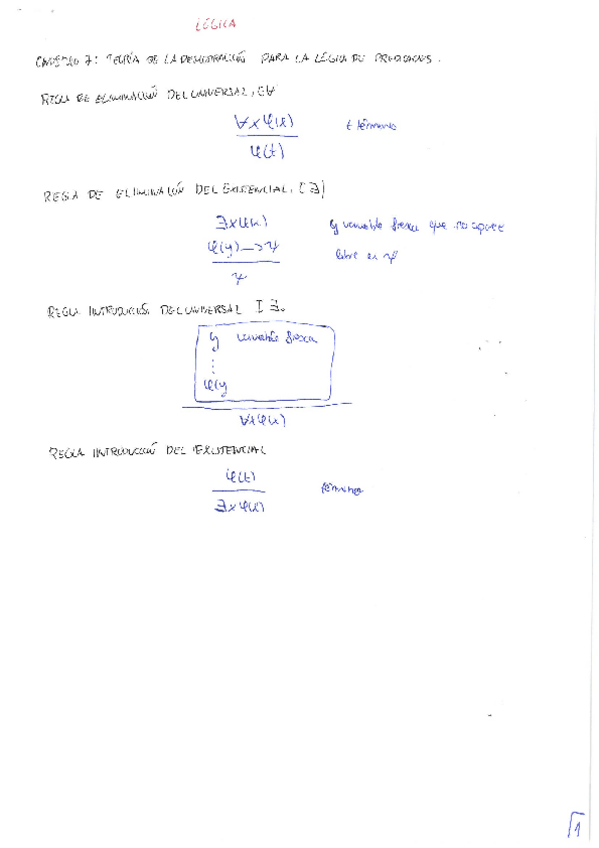 LÓGICA
CAPÍTULO 7: TEORÍA DE LA DEMOSTRACIÓN PARA LA LÓGICA DE PREDICADOS.
REGLA DE ELIMINACIÓN DEL UNIVERSAL, E∀
∀xφ(x) t término
φ(t)
REGLA DE ELIMINACIÓN DEL EXISTENCIAL, (∃)
∃xφ(x) y variable fresca que no aparece
φ(y) → ψ libre en ψ
ψ
REGLA INTRODUCCIÓN DEL UNIVERSAL I ∃.
y variable fresca
⋮
φ(y
∀xφ(x)
REGLA INTRODUCCIÓN DEL EXISTENCIAL
φ(t) término
∃xφ(x)
1